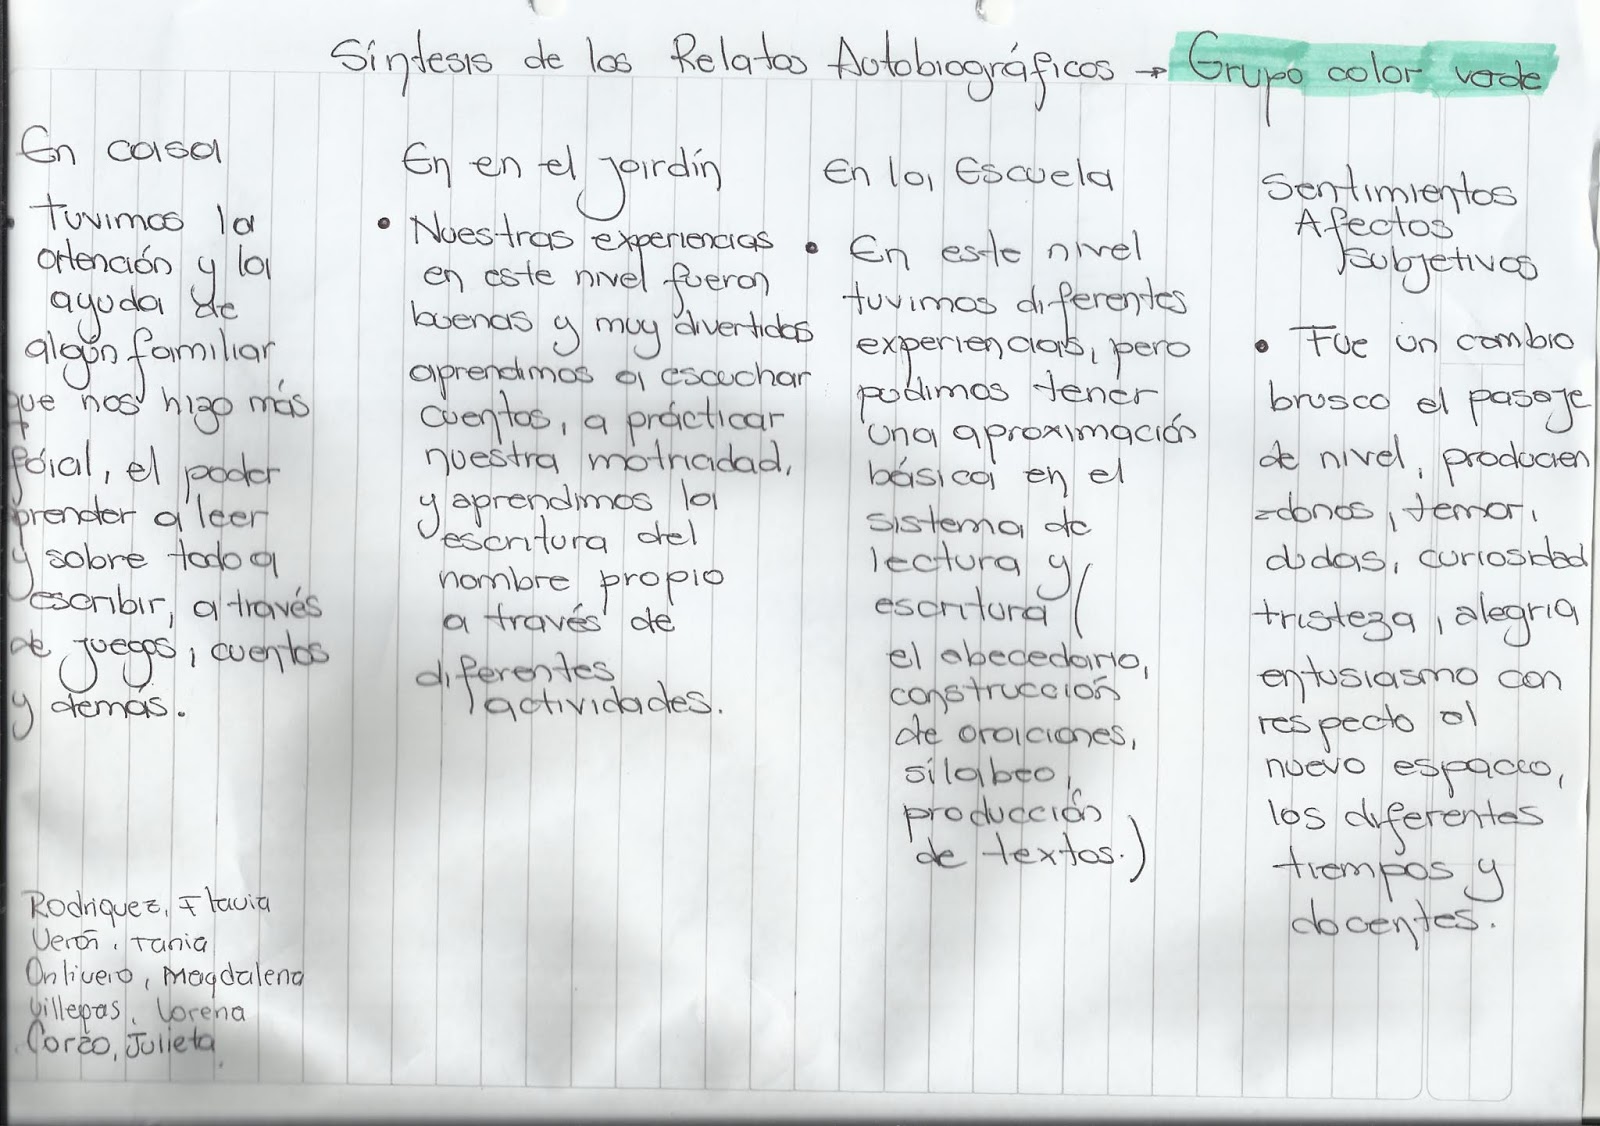 Síntesis de los Relatos Autobiográficos → Grupo color verde
En casa
• Tuvimos la
atención y la
ayuda de
algún familiar
que nos hizo más
fácial, el poder
prender a leer
y sobre todo a
escribir, a través
de juegos, cuentos
y demás.
En en el jardín
• Nuestras experiencias
en este nivel fueron
buenas y muy divertidas
aprendimos a escuchar
cuentos, a prácticar
nuestra motricidad,
y aprendimos la
escritura del
nombre propio
a través de
diferentes
actividades.
En la Escuela
• En este nivel
tuvimos diferentes
experiencias, pero
pudimos tener
una aproximación
básica en el
sistema de
lectura y
escritura (
el abecedario,
construcción
de oraciones,
silabeo,
producción
de textos.)
Sentimientos
Afectos
subjetivos
• Fue un cambio
brusco el pasaje
de nivel, producien
=donos, temor,
dudas, curiosidad
tristeza, alegria
entusiasmo con
respecto al
nuevo espacio,
los diferentes
tiempos y
docentes.
Rodriquez, Flavia
Verón, Tania
Ontivero, Magdalena
Villegas, Lorena
Corzo, Julieta